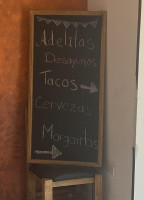 Adelitas
Desayunos
Tacos
Cervezas
Margaritas